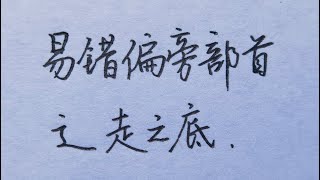 易错偏旁部首
辶 走之底.